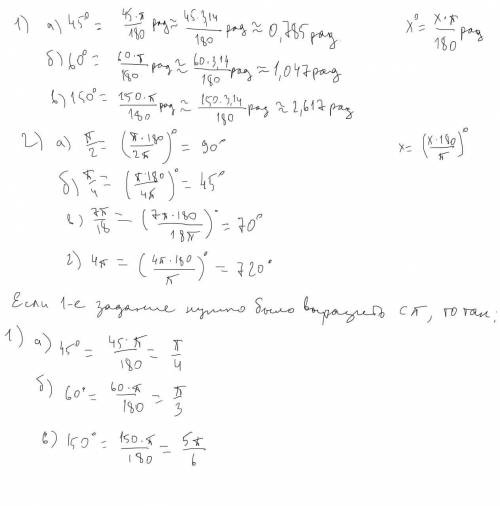 1) а) 45° = 45·π/180 рад ≈ 45·3,14/180 рад ≈ 0,785 рад x° = x·π/180 рад
б) 60° = 60·π/180 рад ≈ 60·3,14/180 ≈ 1,047 рад
в) 150° = 150·π/180 рад ≈ 150·3,14/180 рад ≈ 2,617 рад
2) а) π/2 = (π·180/2π)° = 90° x = (x·180/π)°
б) π/4 = (π·180/4π)° = 45°
в) 7π/18 = (7π·180/18π)° = 70°
г) 4π = (4π·180/π)° = 720°
Если 1-е задание нужно было выразить с π, то так:
1) а) 45° = 45·π/180 = π/4
б) 60° = 60·π/180 = π/3
в) 150° = 150·π/180 = 5π/6